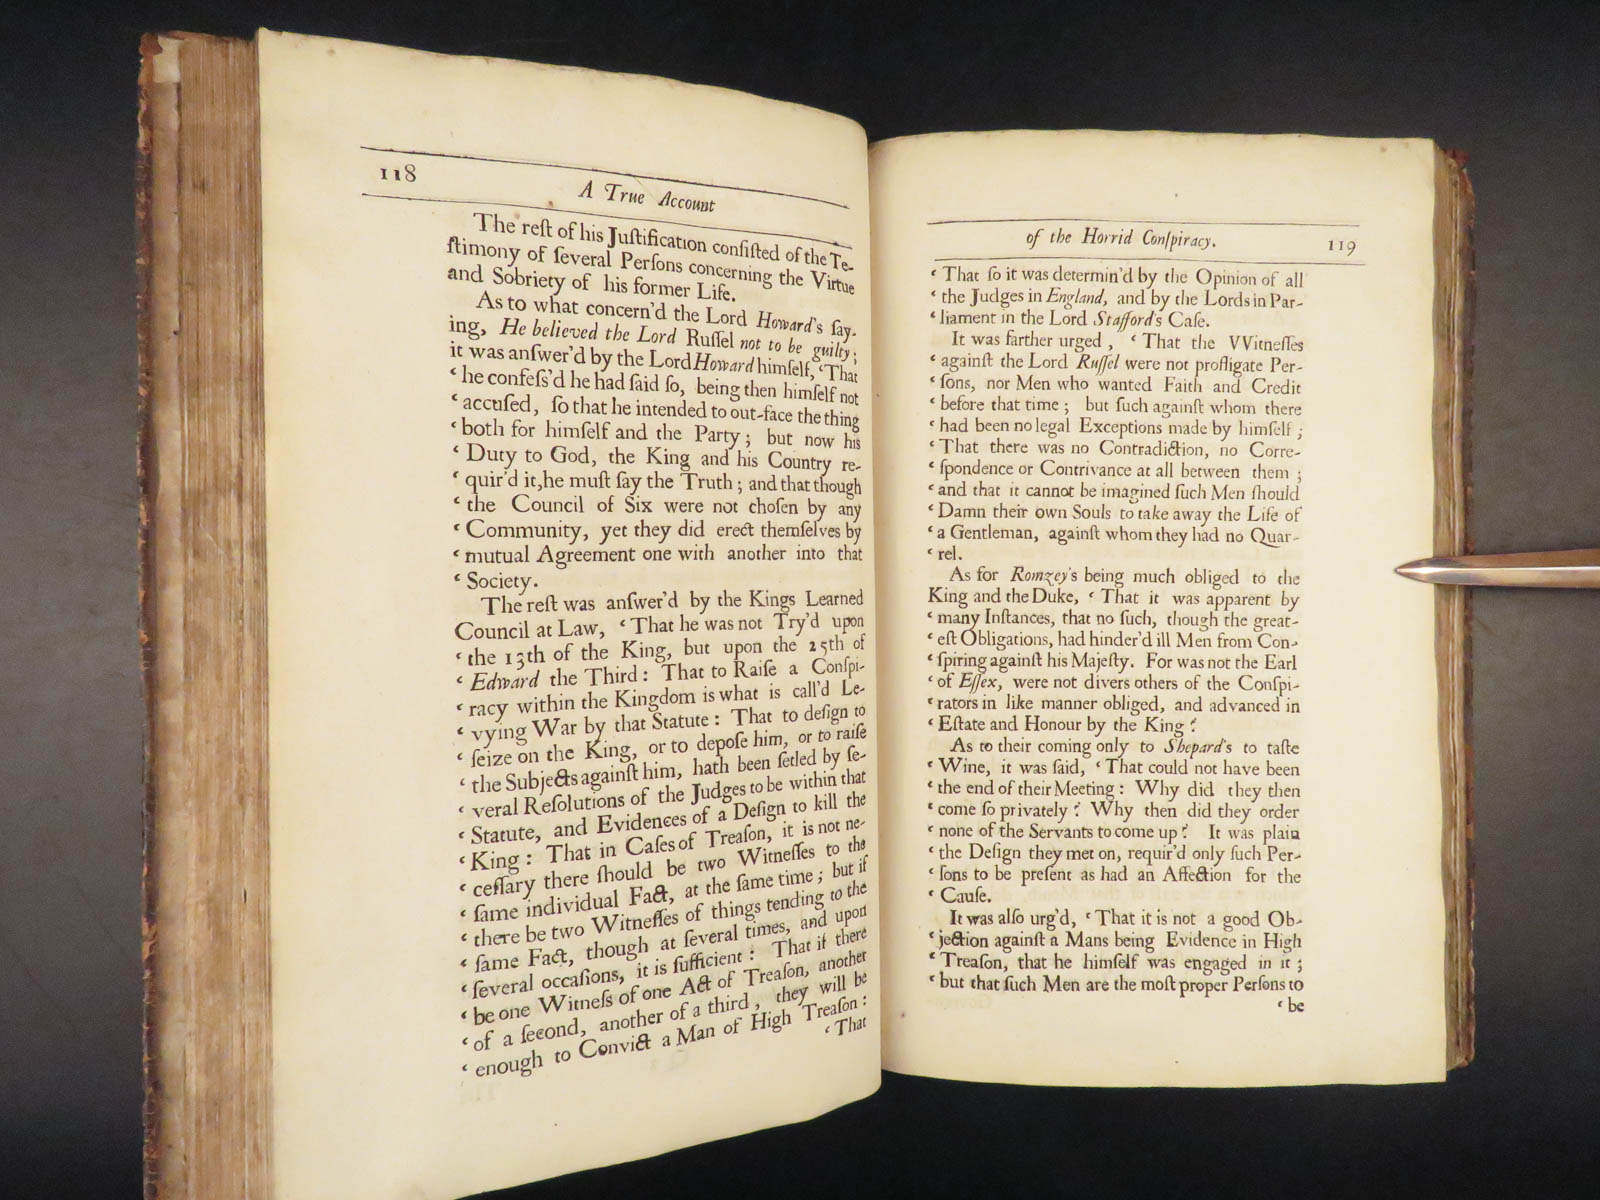 118
A True Account
The reſt of his Juſtification conſiſted of the Te-
ſtimony of ſeveral Perſons concerning the Virtue
and Sobriety of his former Life.
As to what concern'd the Lord Howard's ſay-
ing, He believed the Lord Ruſſel not to be guilty;
it was anſwer'd by the Lord Howard himſelf, ‘That
‘he confeſs'd he had ſaid ſo, being then himſelf not
‘accuſed, ſo that he intended to out-face the thing
‘both for himſelf and the Party; but now his
‘Duty to God, the King and his Country re-
‘quir'd it, he muſt ſay the Truth; and that though
‘the Council of Six were not choſen by any
‘Community, yet they did erect themſelves by
‘mutual Agreement one with another into that
‘Society.
The reſt was anſwer'd by the Kings Learned
Council at Law, ‘That he was not Try'd upon
‘the 13th of the King, but upon the 25th of
‘Edward the Third: That to Raiſe a Conſpi-
‘racy within the Kingdom is what is call'd Le-
‘vying War by that Statute: That to deſign to
‘ſeize on the King, or to depoſe him, or to raiſe
‘the Subjects againſt him, hath been ſetled by ſe-
‘veral Reſolutions of the Judges to be within that
‘Statute, and Evidences of a Deſign to kill the
‘King: That in Caſes of Treaſon, it is not ne-
‘ceſſary there ſhould be two Witneſſes to the
‘ſame individual Fact, at the ſame time; but if
‘there be two Witneſſes of things tending to the
‘ſame Fact, though at ſeveral times, and upon
‘ſeveral occaſions, it is ſufficient: That if there
‘be one Witneſs of one Act of Treaſon, another
‘of a ſecond, another of a third, they will be
‘enough to Convict a Man of High Treaſon:
‘That
of the Horrid Conſpiracy.
119
‘That ſo it was determin'd by the Opinion of all
‘the Judges in England, and by the Lords in Par-
‘liament in the Lord Stafford's Caſe.
It was farther urged, ‘That the VVitneſſes
‘againſt the Lord Ruſſel were not profligate Per-
‘ſons, nor Men who wanted Faith and Credit
‘before that time; but ſuch againſt whom there
‘had been no legal Exceptions made by himſelf;
‘That there was no Contradiction, no Corre-
‘ſpondence or Contrivance at all between them;
‘and that it cannot be imagined ſuch Men ſhould
‘Damn their own Souls to take away the Life of
‘a Gentleman, againſt whom they had no Quar-
‘rel.
As for Romzey's being much obliged to the
King and the Duke, ‘That it was apparent by
‘many Inſtances, that no ſuch, though the great-
‘eſt Obligations, had hinder'd ill Men from Con-
‘ſpiring againſt his Majeſty. For was not the Earl
‘of Eſſex, were not divers others of the Conſpi-
‘rators in like manner obliged, and advanced in
‘Eſtate and Honour by the King?
As to their coming only to Shepard's to taſte
‘Wine, it was ſaid, ‘That could not have been
‘the end of their Meeting: Why did they then
‘come ſo privately? Why then did they order
‘none of the Servants to come up? It was plain
‘the Deſign they met on, requir'd only ſuch Per-
‘ſons to be preſent as had an Affection for the
‘Cauſe.
It was alſo urg'd, ‘That it is not a good Ob-
‘jection againſt a Mans being Evidence in High
‘Treaſon, that he himſelf was engaged in it;
‘but that ſuch Men are the moſt proper Perſons to
‘be